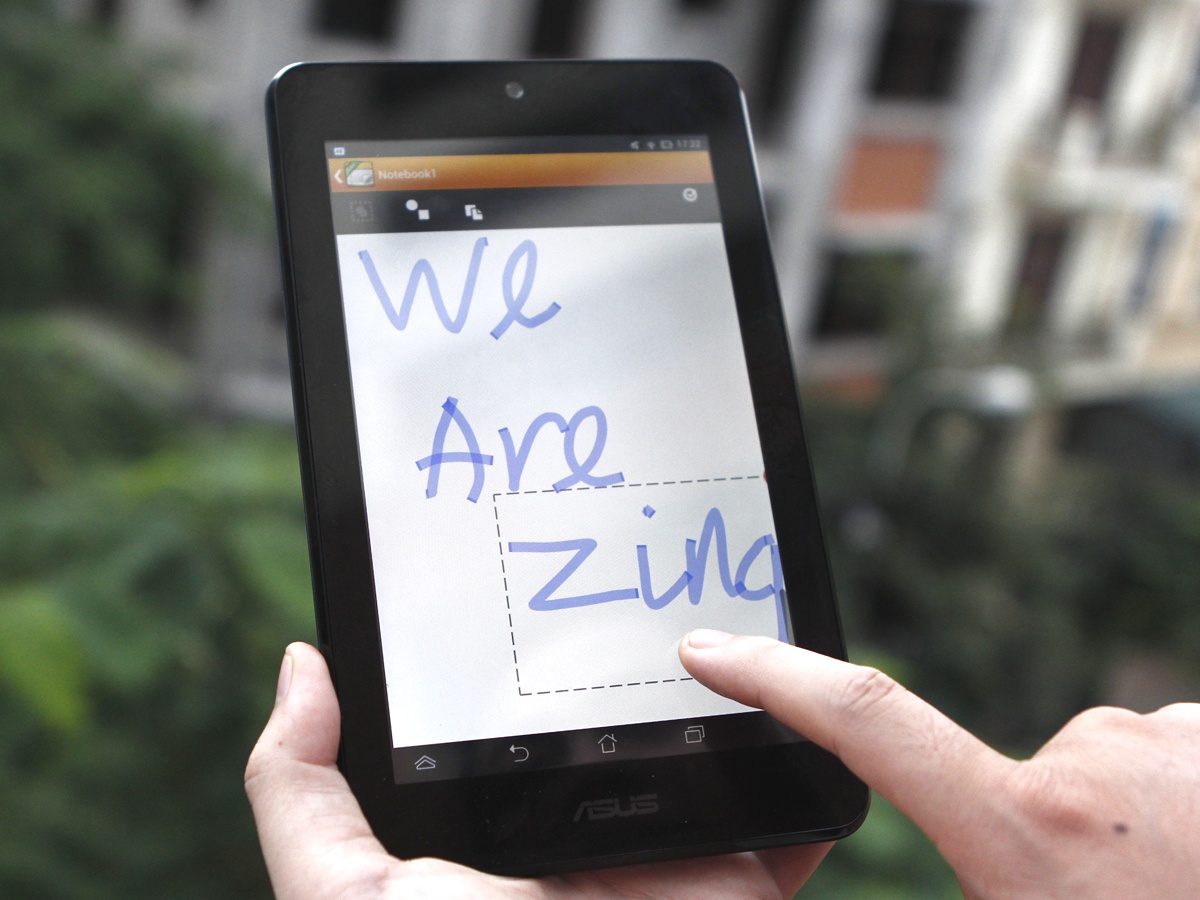 17:22
Notebook1
We
Are
Zing
ASUS